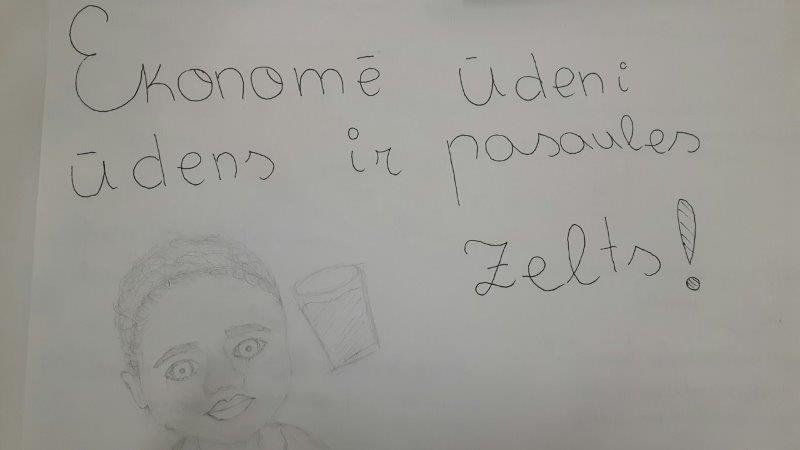 Ekonomē ūdeni
ūdens ir pasaules
zelts!